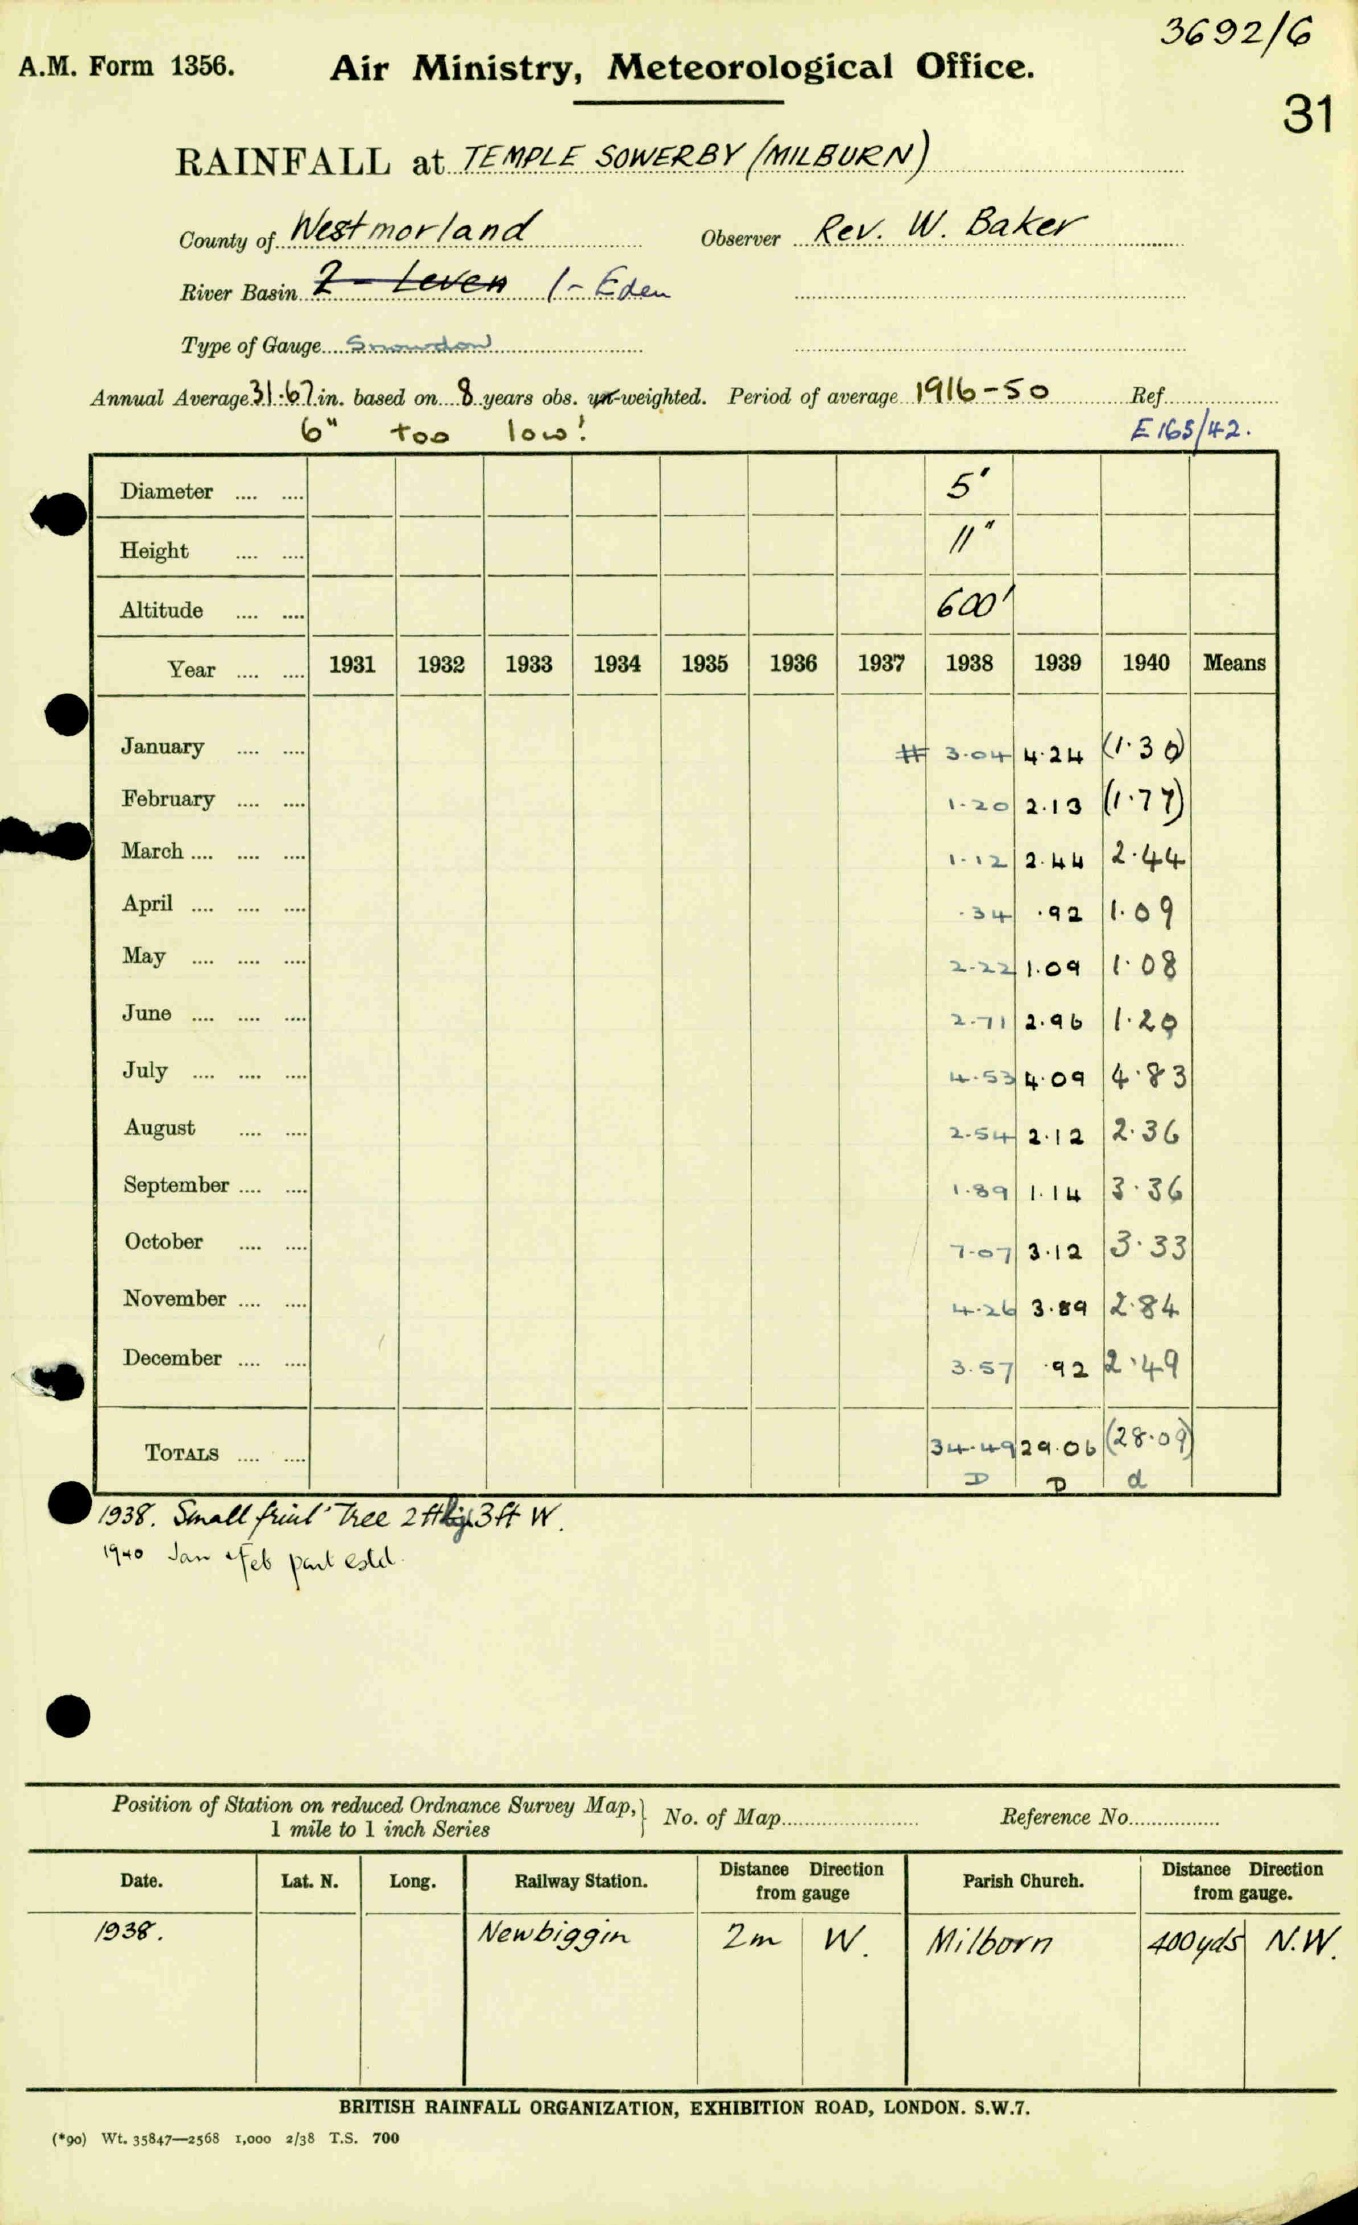 3692/6
A.M. Form 1356. Air Ministry, Meteorological Office.
31
RAINFALL at TEMPLE SOWERBY (MILBURN)
County of Westmorland Observer Rev. W. Baker
River Basin 2 - Leven 1 - Eden
Type of Gauge Snowdon
Annual Average 31.67 in. based on 8 years obs. un-weighted. Period of average 1916-50 Ref.
6" too low! E 165/42.
Diameter 5'
Height 11"
Altitude 600'
Year 1931 1932 1933 1934 1935 1936 1937 1938 1939 1940 Means
January # 3.04 4.24 (1.30)
February 1.20 2.13 (1.77)
March 1.12 2.44 2.44
April .34 .92 1.09
May 2.22 1.09 1.08
June 2.71 2.96 1.20
July 4.53 4.09 4.83
August 2.54 2.12 2.36
September 1.89 1.14 3.36
October 7.07 3.12 3.33
November 4.26 3.89 2.84
December 3.57 .92 2.49
TOTALS 34.49 29.06 (28.09)
D D d
1938. Small fruit Tree 2 ft 3 ft W.
1940 Jan & Feb part estd.
Position of Station on reduced Ordnance Survey Map, No. of Map Reference No.
1 mile to 1 inch Series
Date. Lat. N. Long. Railway Station. Distance Direction from gauge Parish Church. Distance Direction from gauge.
1938. Newbiggin 2m W. Milborn 400yds N.W.
BRITISH RAINFALL ORGANIZATION, EXHIBITION ROAD, LONDON. S.W.7.
(*90) Wt. 35847—2568 1,000 2/38 T.S. 700